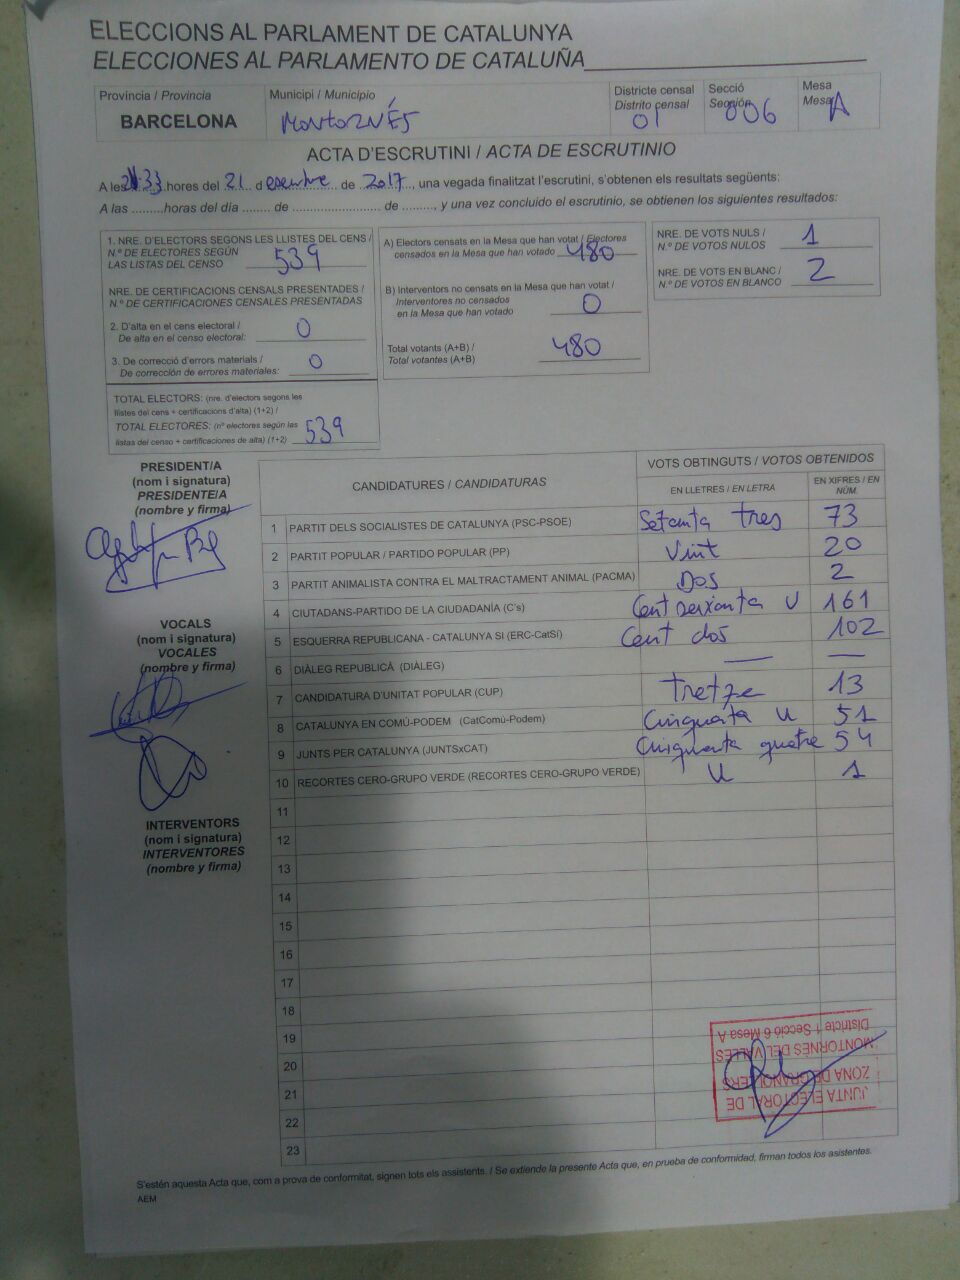 ELECCIONS AL PARLAMENT DE CATALUNYA
ELECCIONES AL PARLAMENTO DE CATALUÑA
Província / Provincia
BARCELONA
Municipi / Municipio
MONTORNÉS
Districte censal
Distrito censal
01
Secció
Sección
006
Mesa
Mesa
A
ACTA D'ESCRUTINI / ACTA DE ESCRUTINIO
A les 21:33 hores del 21 d esembre de 2017, una vegada finalitzat l'escrutini, s'obtenen els resultats següents:
A las .........horas del día ....... de ........................ de ........, y una vez concluido el escrutinio, se obtienen los siguientes resultados:
1. NRE. D'ELECTORS SEGONS LES LLISTES DEL CENS /
N.º DE ELECTORES SEGÚN
LAS LISTAS DEL CENSO 539
NRE. DE CERTIFICACIONS CENSALS PRESENTADES /
N.º DE CERTIFICACIONES CENSALES PRESENTADAS
2. D'alta en el cens electoral /
De alta en el censo electoral: 0
3. De correcció d'errors materials /
De corrección de errores materiales: 0
TOTAL ELECTORS: (nre. d'electors segons les
llistes del cens + certificacions d'alta) (1+2) /
TOTAL ELECTORES: (nº electores según las
listas del censo + certificaciones de alta) (1+2) 539
A) Electors censats en la Mesa que han votat / Electores
censados en la Mesa que han votado 480
B) Interventors no censats en la Mesa que han votat /
Interventores no censados
en la Mesa que han votado 0
Total votants (A+B) /
Total votantes (A+B) 480
NRE. DE VOTS NULS /
N.º DE VOTOS NULOS 1
NRE. DE VOTS EN BLANC /
N.º DE VOTOS EN BLANCO 2
PRESIDENT/A
(nom i signatura)
PRESIDENTE/A
(nombre y firma)
VOCALS
(nom i signatura)
VOCALES
(nombre y firma)
INTERVENTORS
(nom i signatura)
INTERVENTORES
(nombre y firma)
CANDIDATURES / CANDIDATURAS
VOTS OBTINGUTS / VOTOS OBTENIDOS
EN LLETRES / EN LETRA
EN XIFRES / EN NÚM.
1 PARTIT DELS SOCIALISTES DE CATALUNYA (PSC-PSOE) Setanta tres 73
2 PARTIT POPULAR / PARTIDO POPULAR (PP) Vint 20
3 PARTIT ANIMALISTA CONTRA EL MALTRACTAMENT ANIMAL (PACMA) Dos 2
4 CIUTADANS-PARTIDO DE LA CIUDADANÍA (C's) Cent seixanta U 161
5 ESQUERRA REPUBLICANA - CATALUNYA SI (ERC-CatSí) Cent dos 102
6 DIÀLEG REPUBLICÀ (DIÀLEG) — —
7 CANDIDATURA D'UNITAT POPULAR (CUP) Tretze 13
8 CATALUNYA EN COMÚ-PODEM (CatComú-Podem) Cinquanta U 51
9 JUNTS PER CATALUNYA (JUNTSxCAT) Cinquanta quatre 54
10 RECORTES CERO-GRUPO VERDE (RECORTES CERO-GRUPO VERDE) U 1
11
12
13
14
15
16
17
18
19
20
21
22
23
JUNTA ELECTORAL DE
ZONA DE GRANOLLERS
MONTORNÈS DEL VALLÈS
Districte 1 Secció 6 Mesa A
S'estén aquesta Acta que, com a prova de conformitat, signen tots els assistents. / Se extiende la presente Acta que, en prueba de conformidad, firman todos los asistentes.
AEM